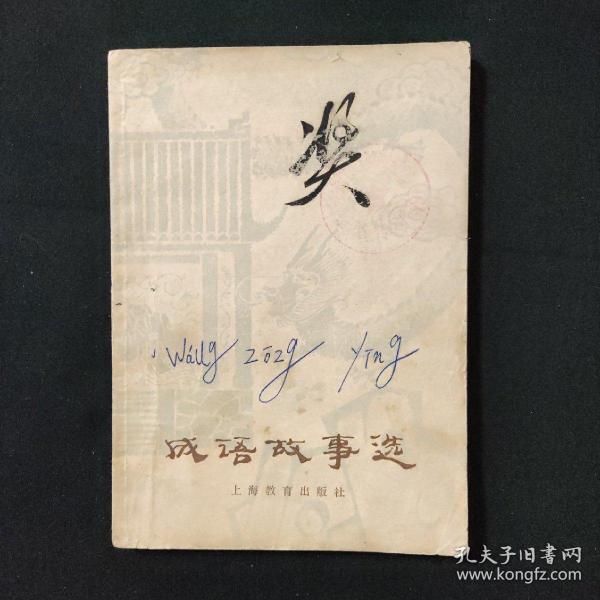 奖
Wáng Zōng Yīng
成语故事选
上海教育出版社
孔夫子旧书网
www.kongfz.com